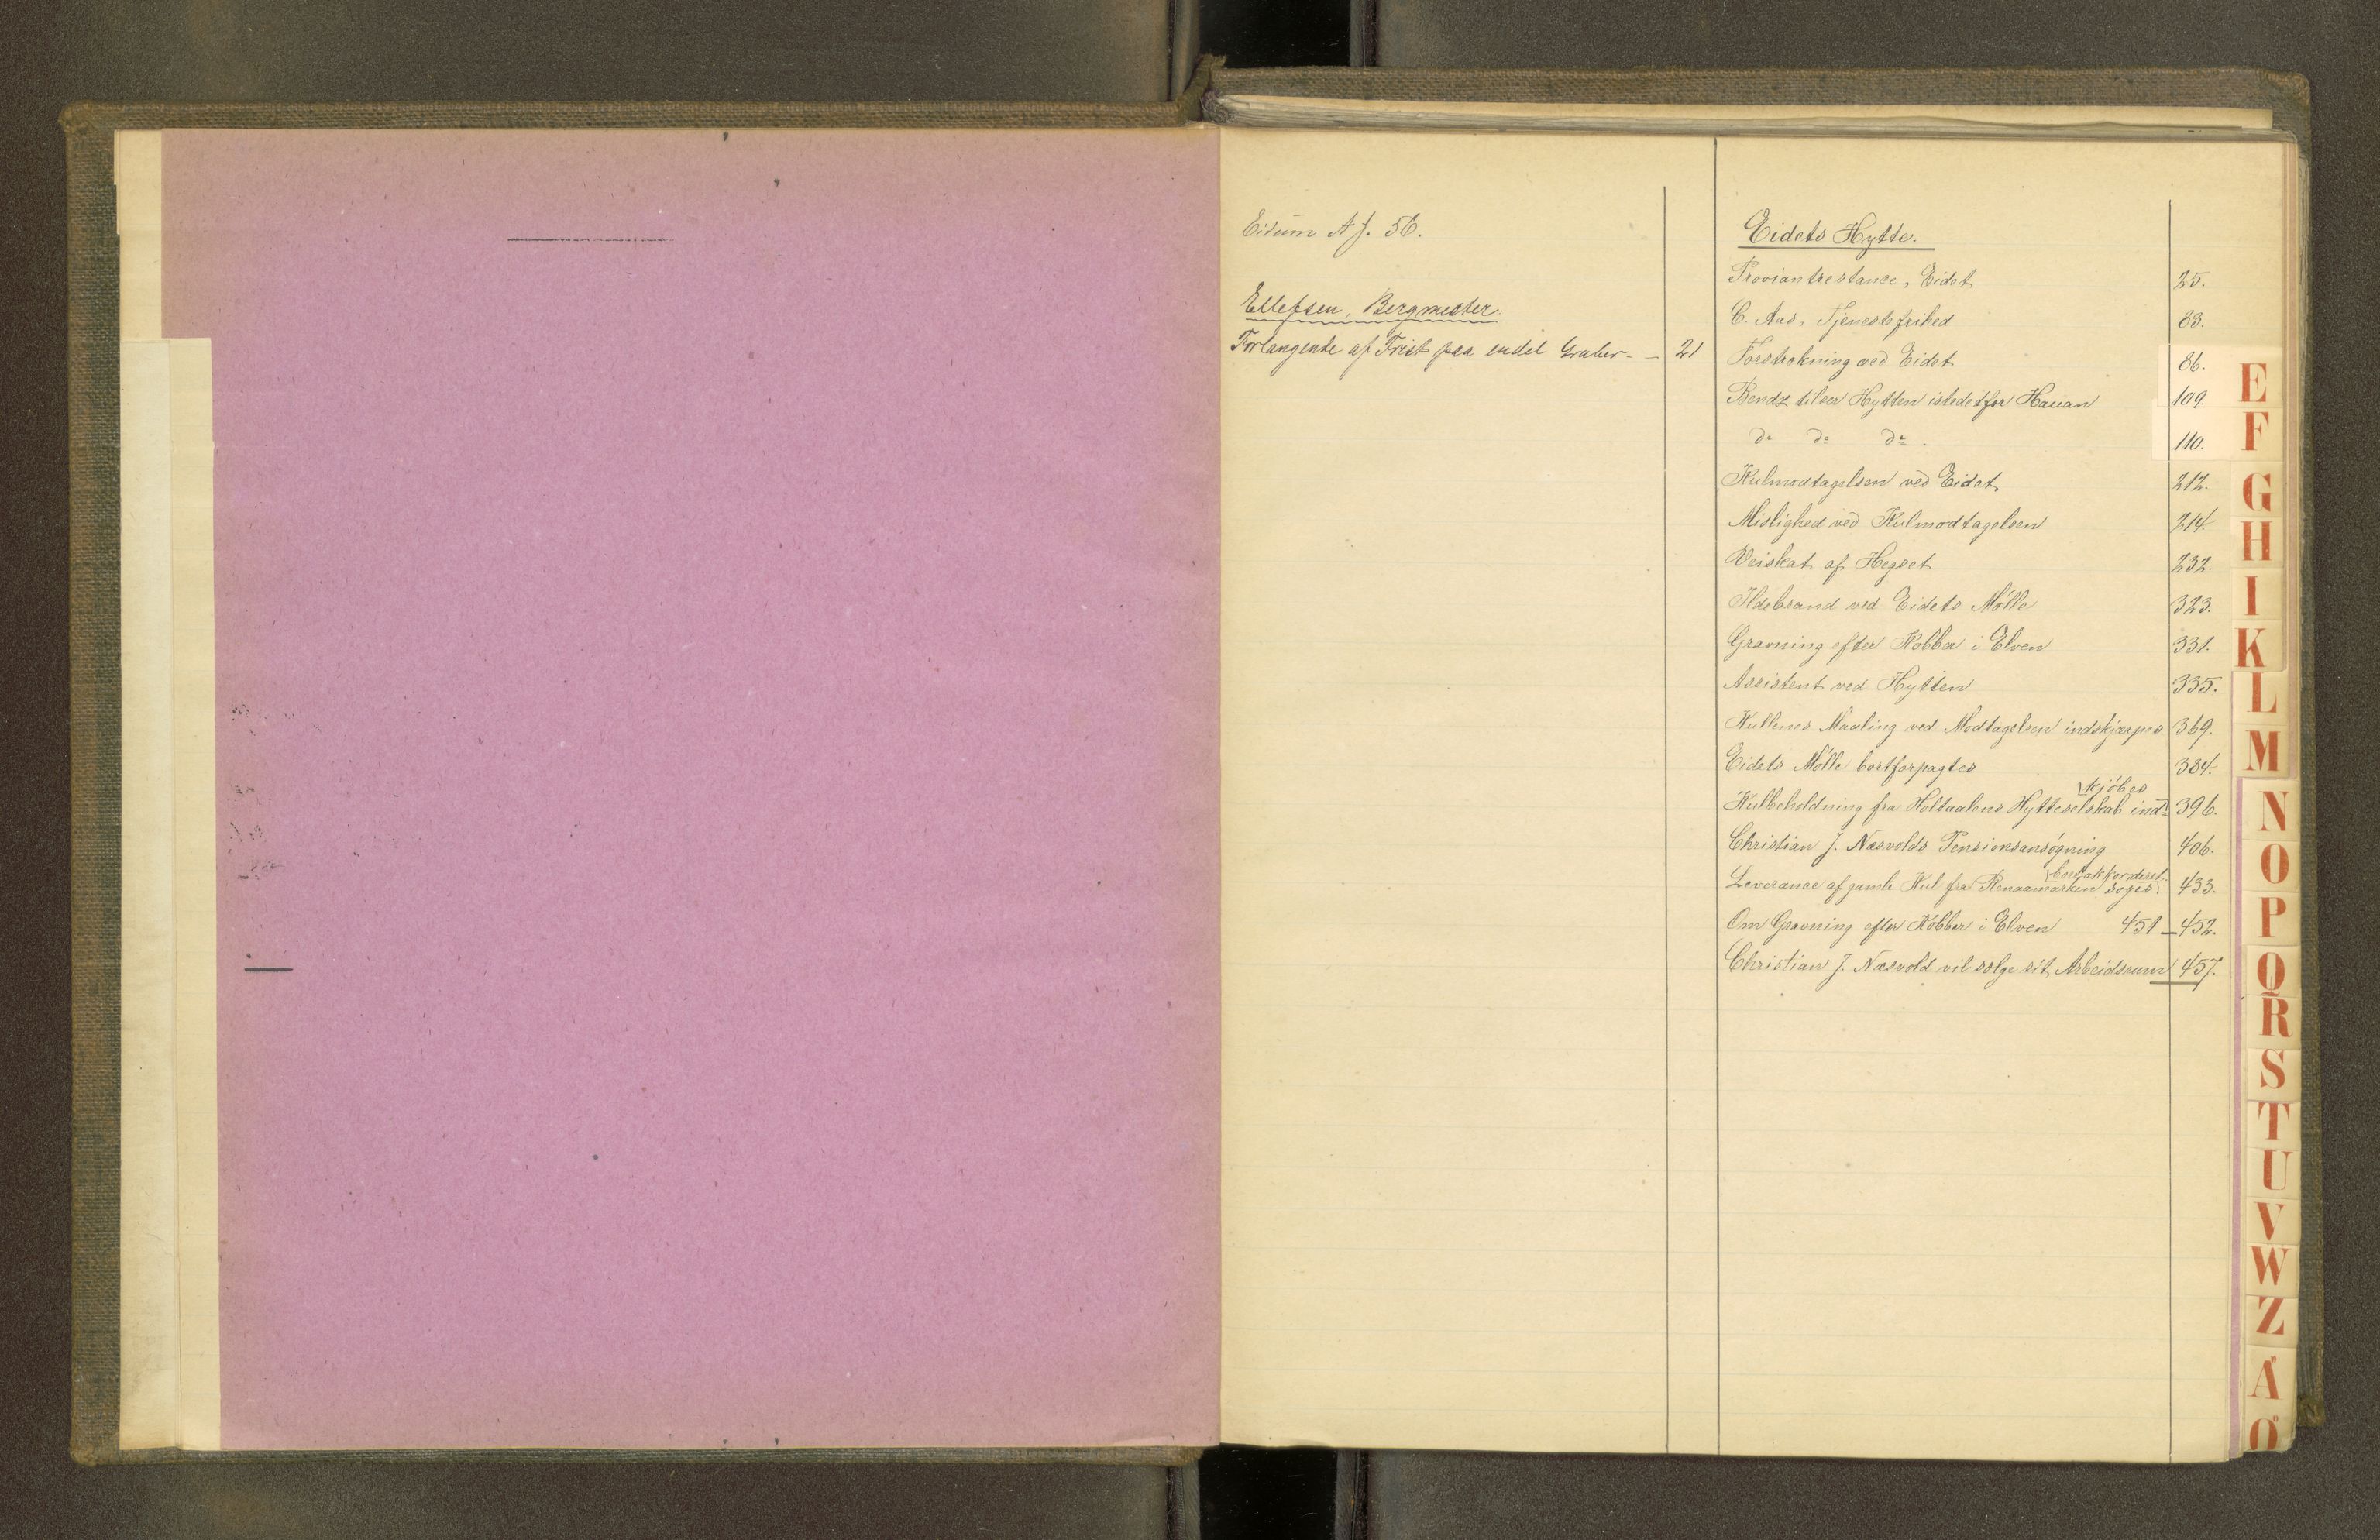 Eidum A J. 56.
Ellefsen, Bergmester.
Forlangende af Frist paa endel Gruber - - 21
Eidets Hytte.
Proviantrestance, Eidet 25.
C. Aas, Tjenestefrihed 83.
Forstrækning ved Eidet 86.
Bendz tilser Hytten istedetfor Hauan 109.
do do do . 110.
Kulmodtagelsen ved Eidet. 212.
Mislighed ved Kulmodtagelsen 214.
Veiskat af Hegset 232.
Ildebrand ved Eidets Mølle 323.
Gravning efter Kobber i Elven 331.
Assistent ved Hytten 335.
Kullenes Maaling ved Modtagelsen indskjærpes 369.
Eidets Mølle bortforpagtes 384.
Kulbeholdning fra Holtaalens Hytteselskab ind- kjøbes 396.
Christian J. Næsvolds Pensionsansøgning 406.
Leverance af gamle Kul fra Renaamarken søges bortakkorderet. 433.
Om Gravning efter Kobber i Elven 451 – 452.
Christian J. Næsvold vil sælge sit Arbeidsrum 457.
E
F
G
H
I
K
L
M
N
O
P
Q
R
S
T
U
V
W
Z
Å
Ø